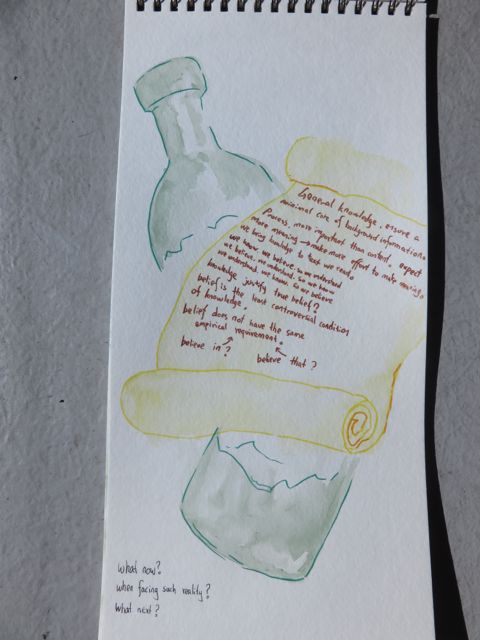 General knowledge, ensure a
minimal core of background information
Process, more important than content, expect
more meaning → make more effort to make meaning.
we bring knowledge to text we read.
we know, we believe, so we understand
we believe, we understand, so we know
we understand, we know, so we believe
knowledge justify true belief?
belief is the least controversial condition
of knowledge.
belief does not have the same
empirical requirement.
believe in?
believe that?
what now?
when facing such reality?
What next?